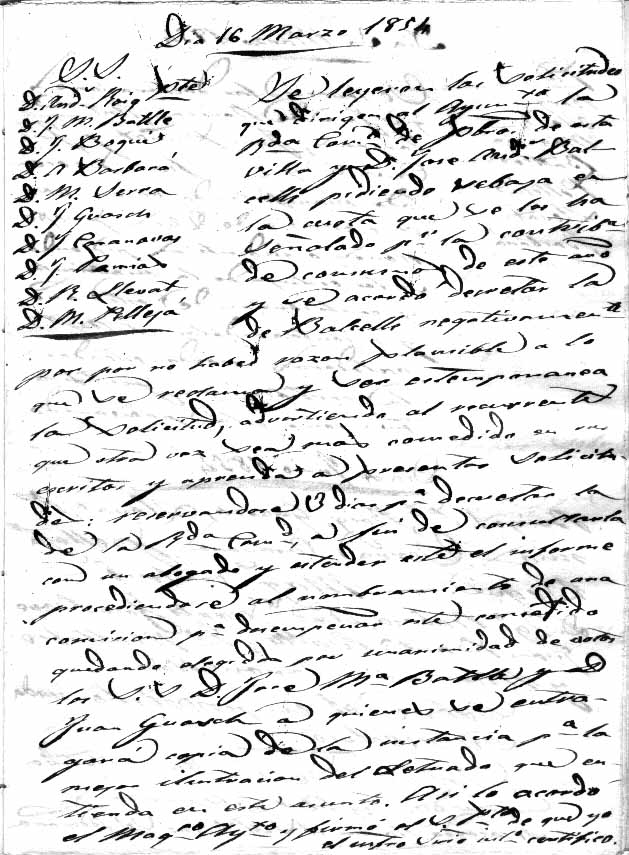 Dia 16 Marzo 1854
S.S.
D. Ands. Roig Pte
D. J. M. Batlle
D. J. Boqué
D. A. Barbará
D. M. Serra
D. J. Guasch
D. J. Casanovas
D. J. Pamias
D. R. Llevat
D. M. Pellejá
Se leyeron las solicitudes
que dirigen al Ayunto. la
Rda Comd. de Pbros. de esta
villa y D. Jose Bat
celle pidiendo rebaja en
la cuota que se les ha
señalado pa. la contribn.
de consumos de este año
y se acordó decretar la
de Batcelle negativamente
por por no haber razon plausible a lo
que se reclama y ser estemporanea
la solicitud, advirtiendo al recurrente
que otra vez sea mas comedido en sus
escritos y aprenda a presentar solicitu-
des: reservandose 3 dias pa. decretar la
de la Rda Comd. a fin de consultarla
con un abogado y estender este el informe
procediendose al nombramiento de una
comision pa. desempeñar este cometido
quedando elegida por unanimidad de votos
los S.S. D. Jose Ma. Batlle y D.
Juan Guasch a quienes se entre-
gará copia de la instancia pa. la
mejor ilustracion del Letrado que en-
tienda en este asunto. Asi lo acordó
el Magco. Ayto. y firmó el S. Pte. de que yo
el infro. Srio. certifico.